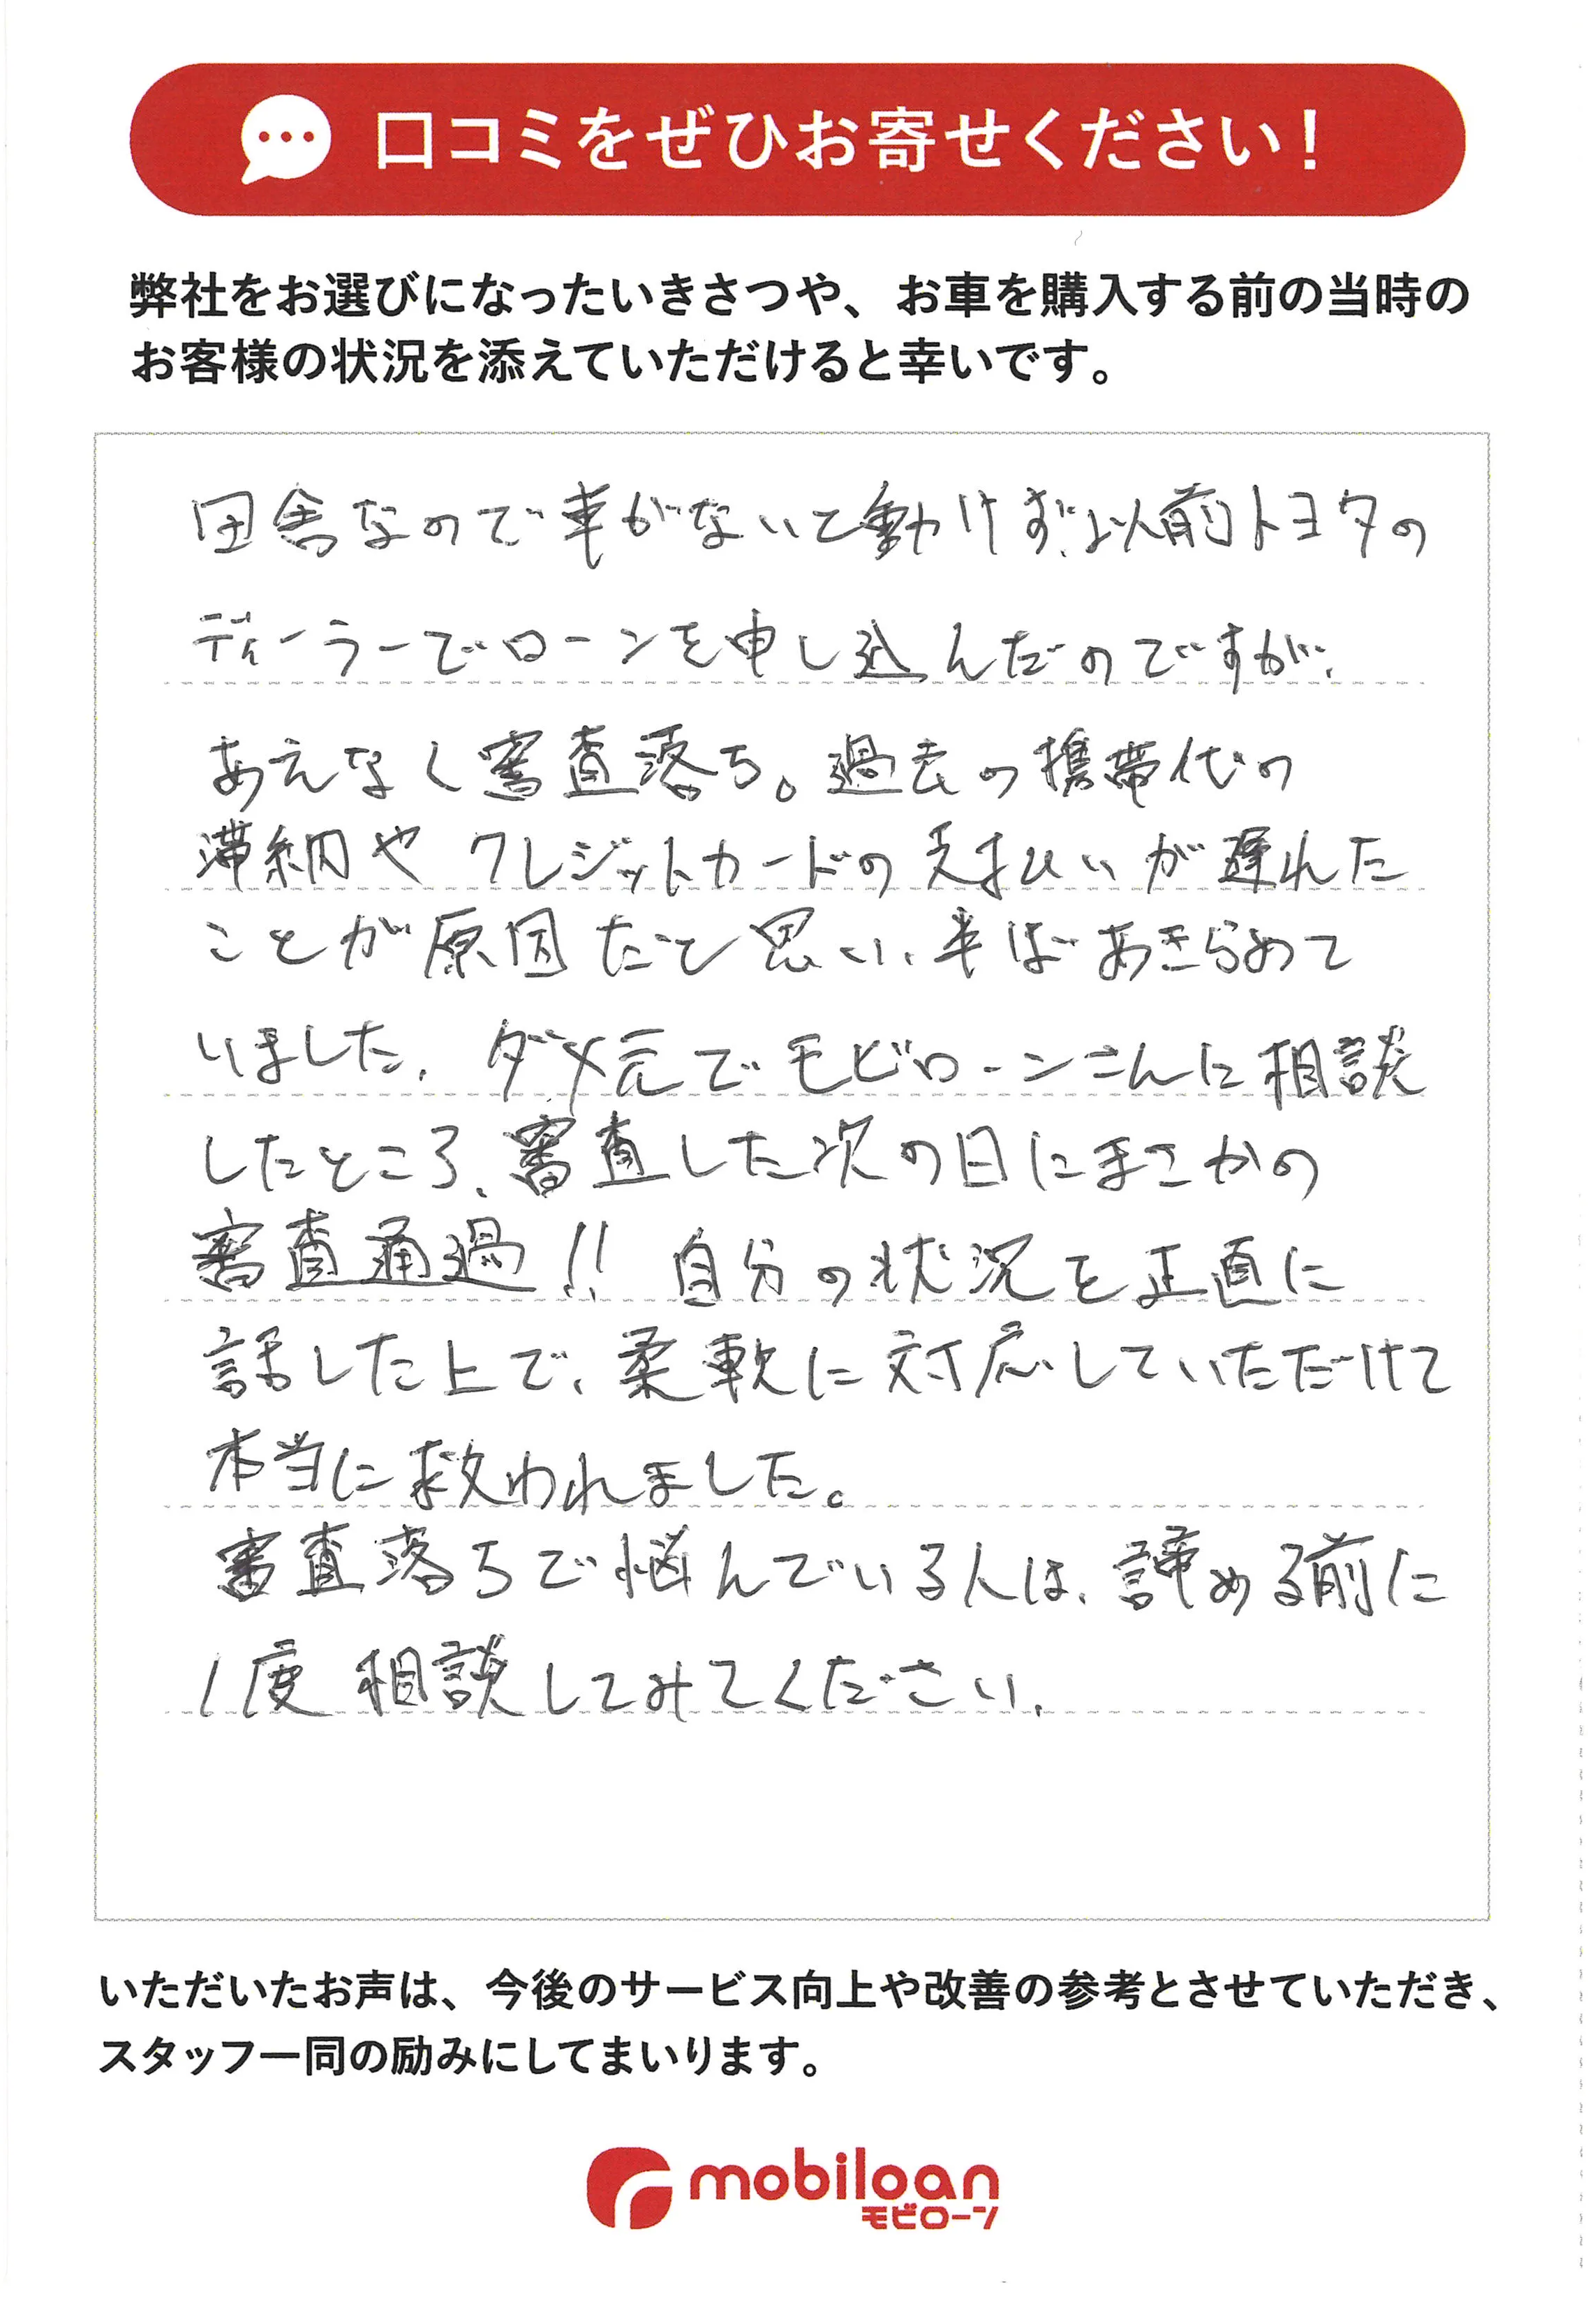 口コミをぜひお寄せください！
弊社をお選びになったいきさつや、お車を購入する前の当時の
お客様の状況を添えていただけると幸いです。
田舎なので車がないと動けず、以前トヨタの
ディーラーでローンを申し込んだのですが、
あえなく審査落ち。過去の携帯代の
滞納やクレジットカードの支払いが遅れた
ことが原因だと思い、半ばあきらめて
いました。ダメ元でモビローンさんに相談
したところ、審査した次の日にまさかの
審査通過!! 自分の状況を正直に
話した上で、柔軟に対応していただけて
本当に救われました。
審査落ちで悩んでいる人は、諦める前に
1度相談してみてください。
いただいたお声は、今後のサービス向上や改善の参考とさせていただき、
スタッフ一同の励みにしてまいります。
mobiloan
モビローン